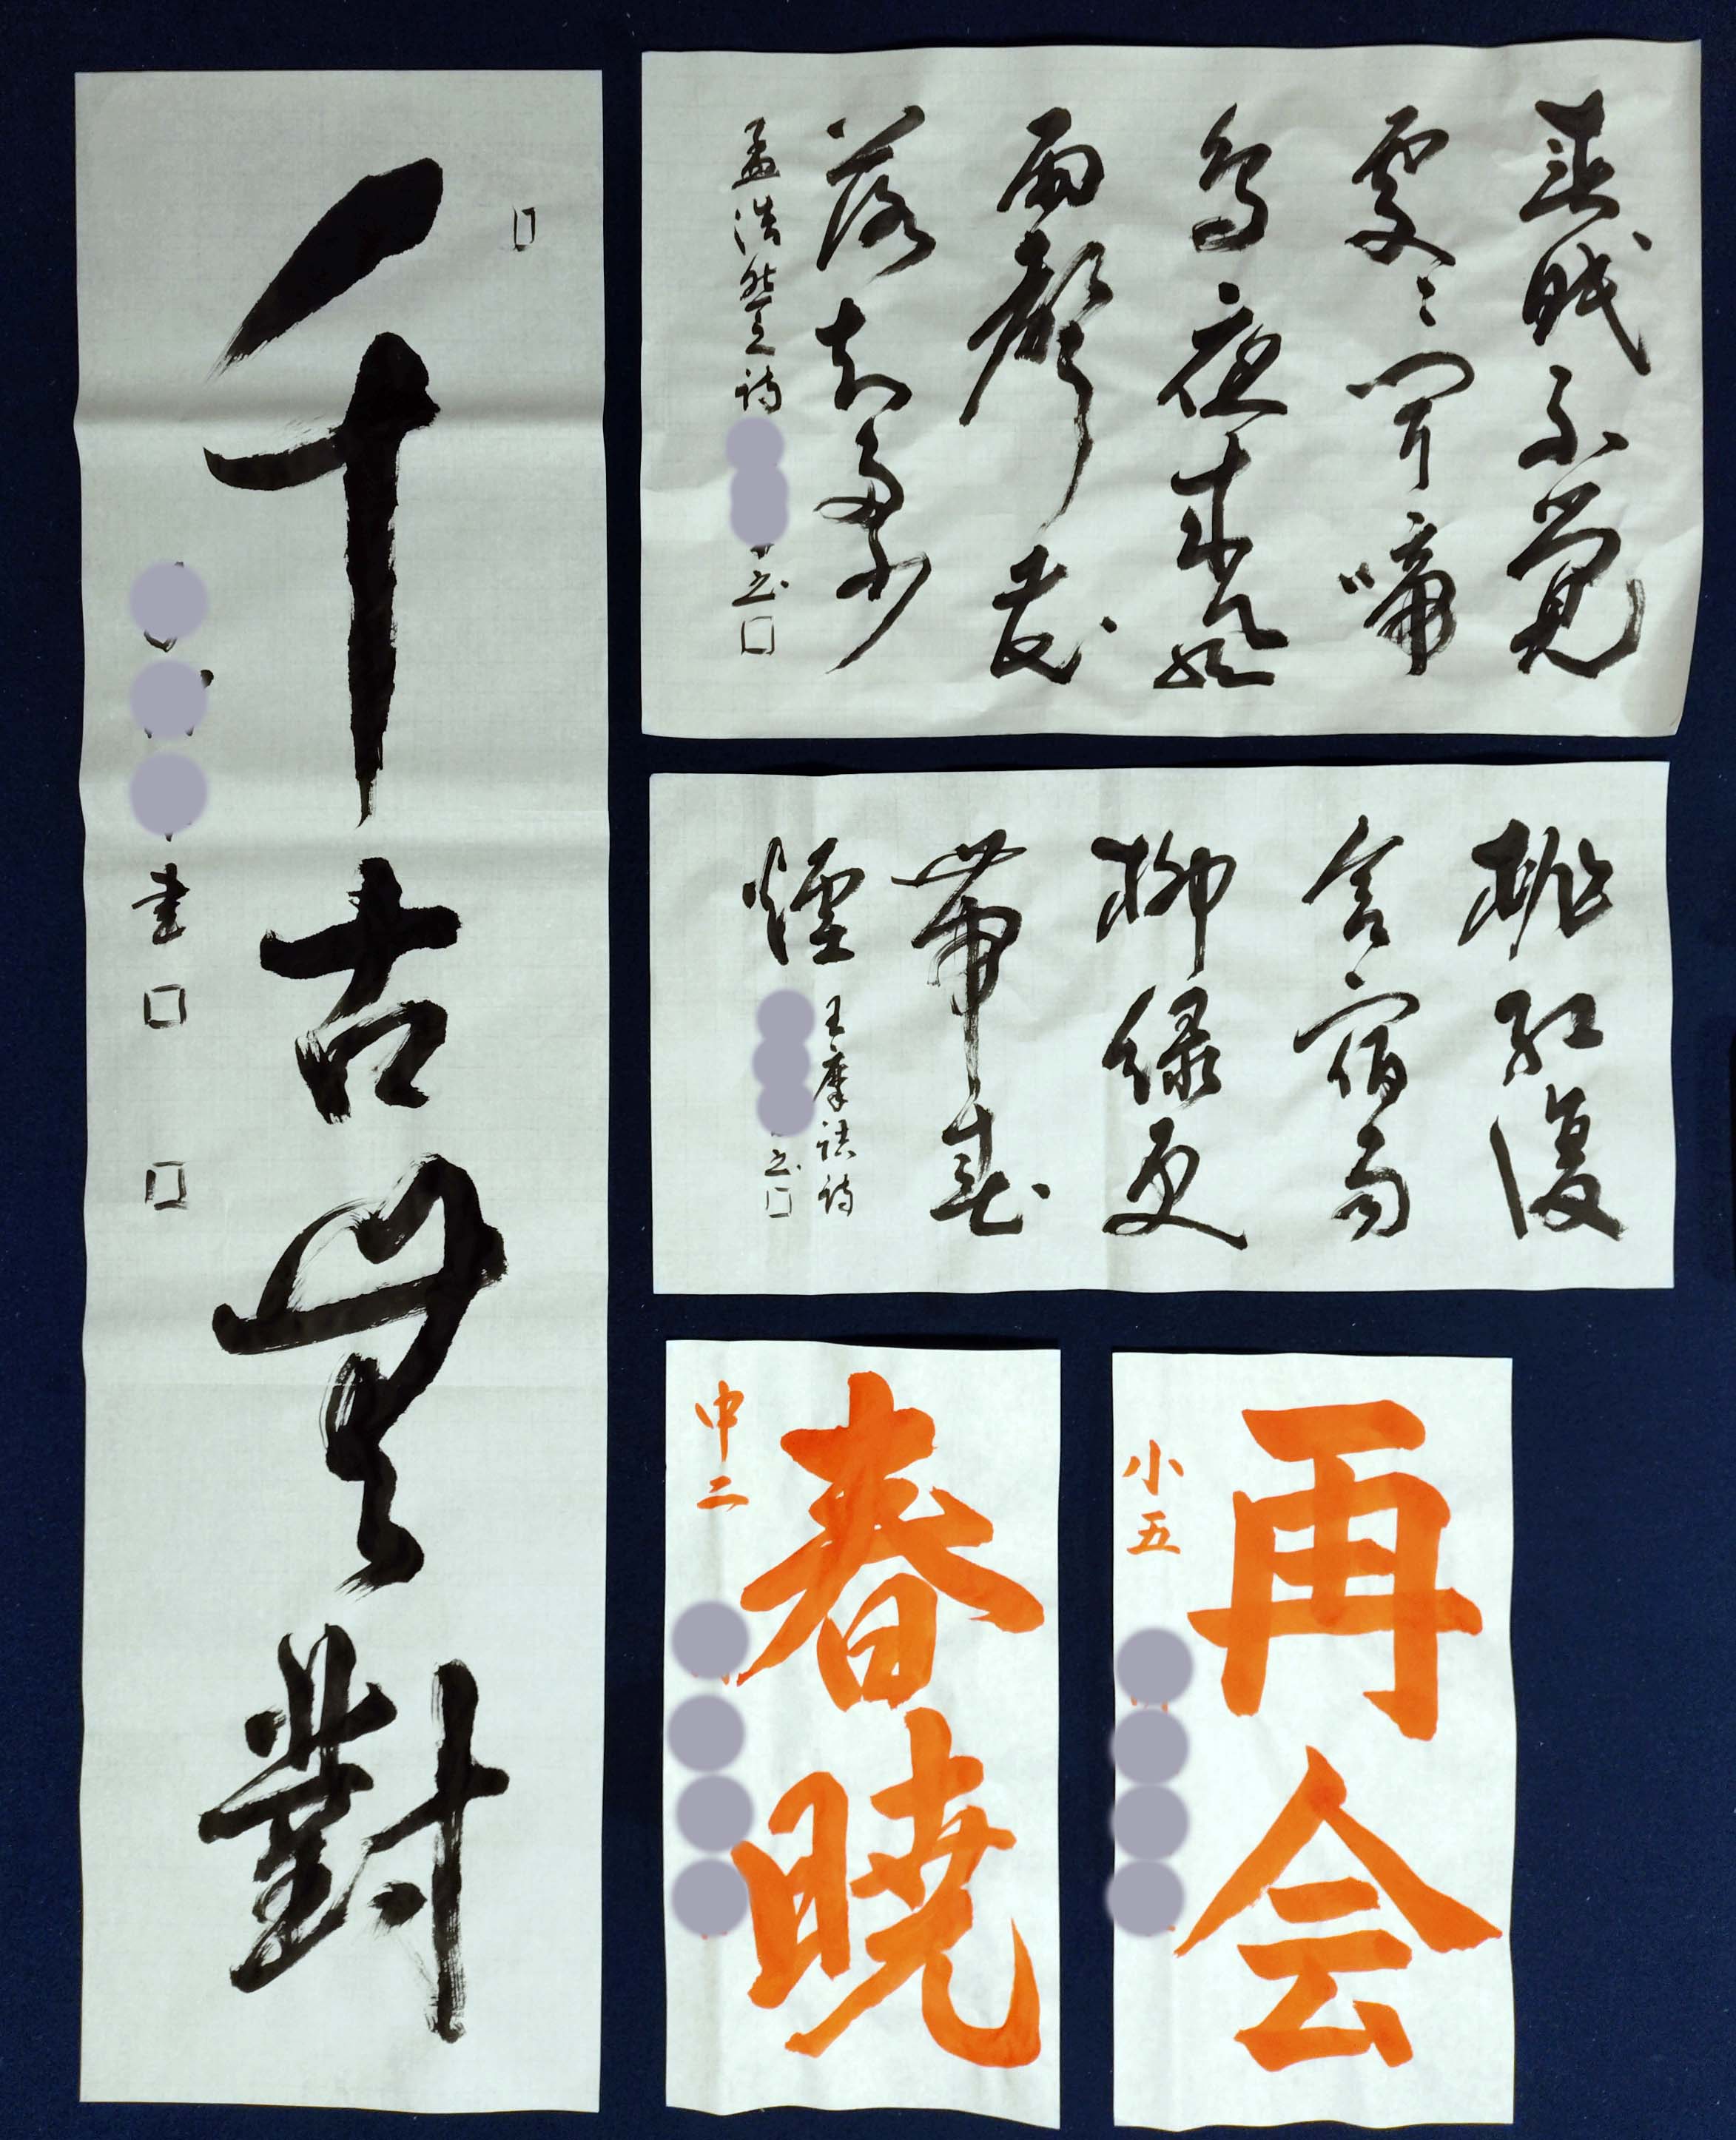 千古無對
書
春眠不覺
處々聞啼
鳥夜来風
雨聲花
落知多少
孟浩然之詩
書
桃紅復
含宿雨
柳緑更
帶春
煙
王摩詰詩
書
再会
小五
春暁
中二